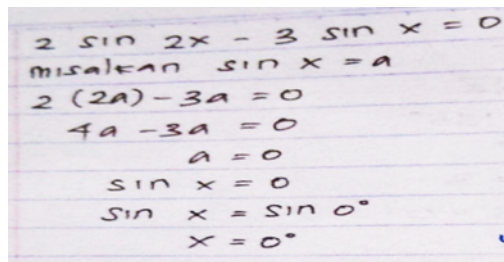 2 sin 2x - 3 sin x = 0
misalkan sin x = a
2 (2a) - 3a = 0
4a - 3a = 0
a = 0
sin x = 0
sin x = sin 0°
x = 0°